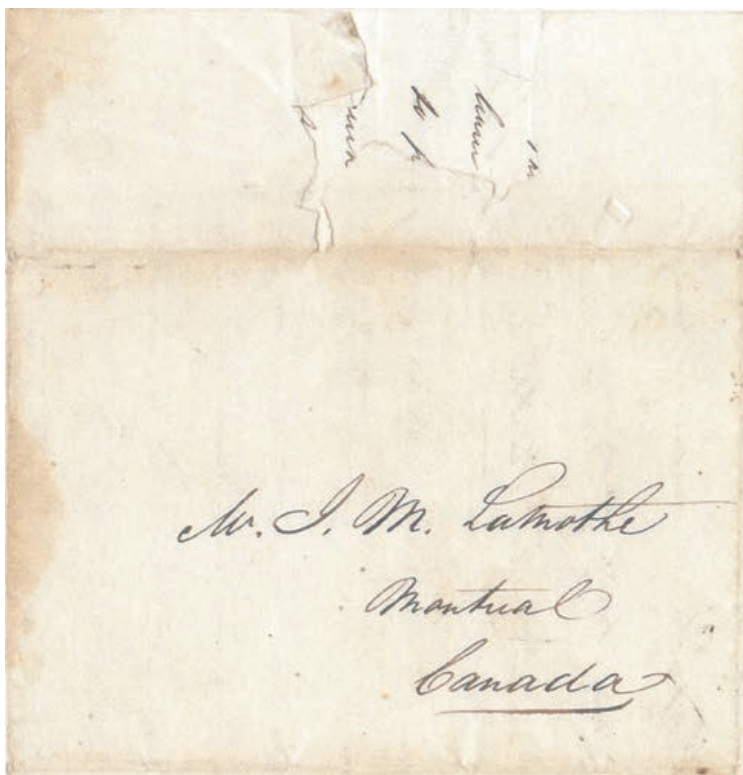 Mr. J. M. Lamothe
Montreal
Canada